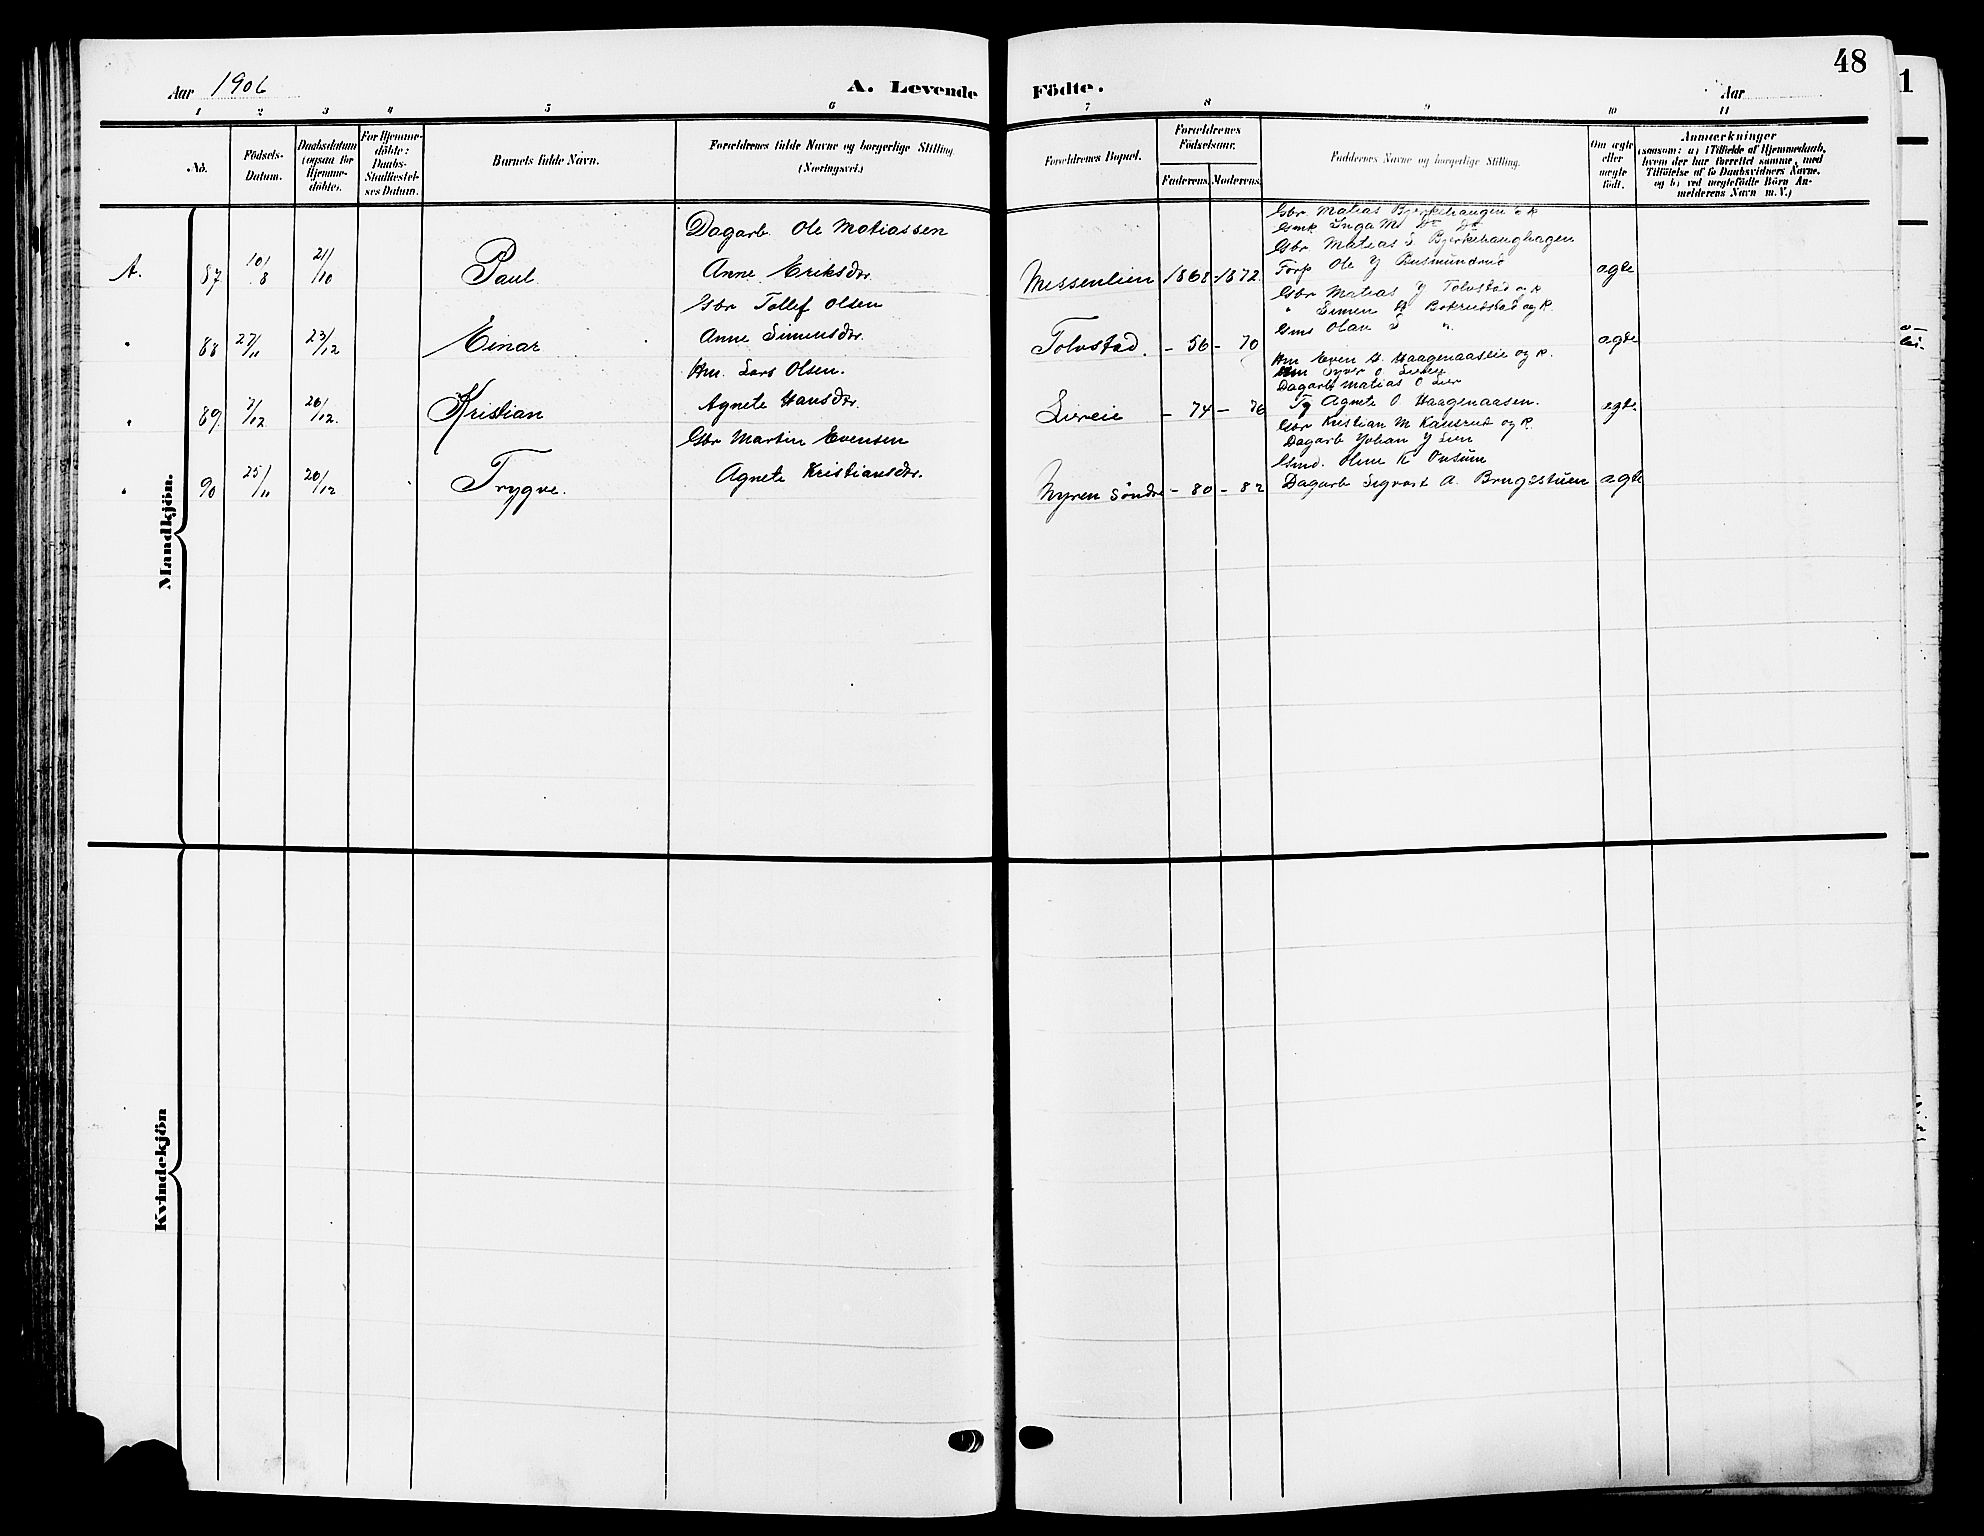 48
Aar 1906
A. Levende Födte.
Aar
1 2 3 4 5 6 7 8 9 10 11
No.
Födsels-Datum.
Daabsdatum (ogsaa for Hjemmedöbte).
For Hjemmedöbte: Daabs-Stadfæstelses Datum.
Barnets fulde Navn.
Forældrenes fulde Navne og borgerlige Stilling (Næringsvei.)
Forældrenes Bopæl.
Forældrenes Födselsaar.
Faderens. Moderens.
Faddernes Navne og borgerlige Stilling.
Om ægte eller uægte födt.
Anmærkninger
(saasom: a) i Tilfælde af Hjemmedaab,
hvem der har forrettet samme, med
Tilföielse af to Daabsvidners Navne,
og b) ved uægtefödte Börn An-
melderens Navn m. V.)
Mandkjön.
A. 87 10/8 21/10 Paul.
Dagarb. Ole Matiassen
Anne Eriksdr.
Messenlien 1868 - 1872.
Gbr Matias Bjerkehaugen o k
Gmk Inga M Do Do
Gbr Matias S Bjerkehaughagen
Torp Ole J
agte
" 88 27/11 23/12 Einar
Gbr Tollef Olsen
Anne Simensdr.
Tolvstad. - 56 - 70
Gbr Matias J Tolvstad og k
" Simen og k.
Gms Olav S "
agte
" 89. 7/12 26/12. Kristian
Hm. Lars Olsen.
Agnete Hansdr.
Liereie - 74 - 76
Hm Even H. Haagenaaseie og k.
Hm Syver O Liereie
Dagarb Matias O Lier
Tg Agnete O Haagenaasen.
egte.
" 90 25/11 20/12 Trygve.
Gbr Martin Evensen
Agnete Kristiansdr.
Nyren Söndre - 80 - 82
Gbr Kristian M Kauserud og k.
Dagarb Johan J Lien
Gmd. Oline K Onsum
Dagarb Sigvart A. Brugsstuen
agte
Kvindekjön
1